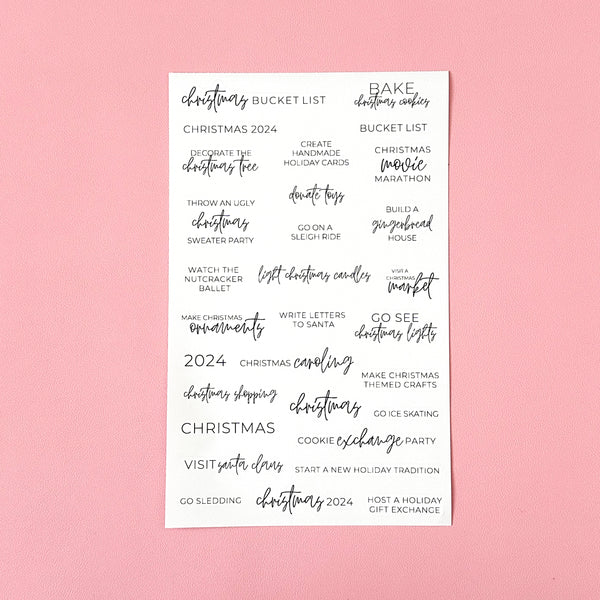 christmas BUCKET LIST
BAKE
christmas cookies
CHRISTMAS 2024
BUCKET LIST
DECORATE THE
christmas tree
CREATE
HANDMADE
HOLIDAY CARDS
CHRISTMAS
movie
MARATHON
donate toys
THROW AN UGLY
christmas
SWEATER PARTY
GO ON A
SLEIGH RIDE
BUILD A
gingerbread
HOUSE
WATCH THE
NUTCRACKER
BALLET
light christmas candles
VISIT A
CHRISTMAS
market
MAKE CHRISTMAS
ornaments
WRITE LETTERS
TO SANTA
GO SEE
christmas lights
2024
CHRISTMAS caroling
MAKE CHRISTMAS
THEMED CRAFTS
christmas shopping
christmas
GO ICE SKATING
CHRISTMAS
COOKIE exchange PARTY
VISIT santa claus
START A NEW HOLIDAY TRADITION
GO SLEDDING
christmas 2024
HOST A HOLIDAY
GIFT EXCHANGE